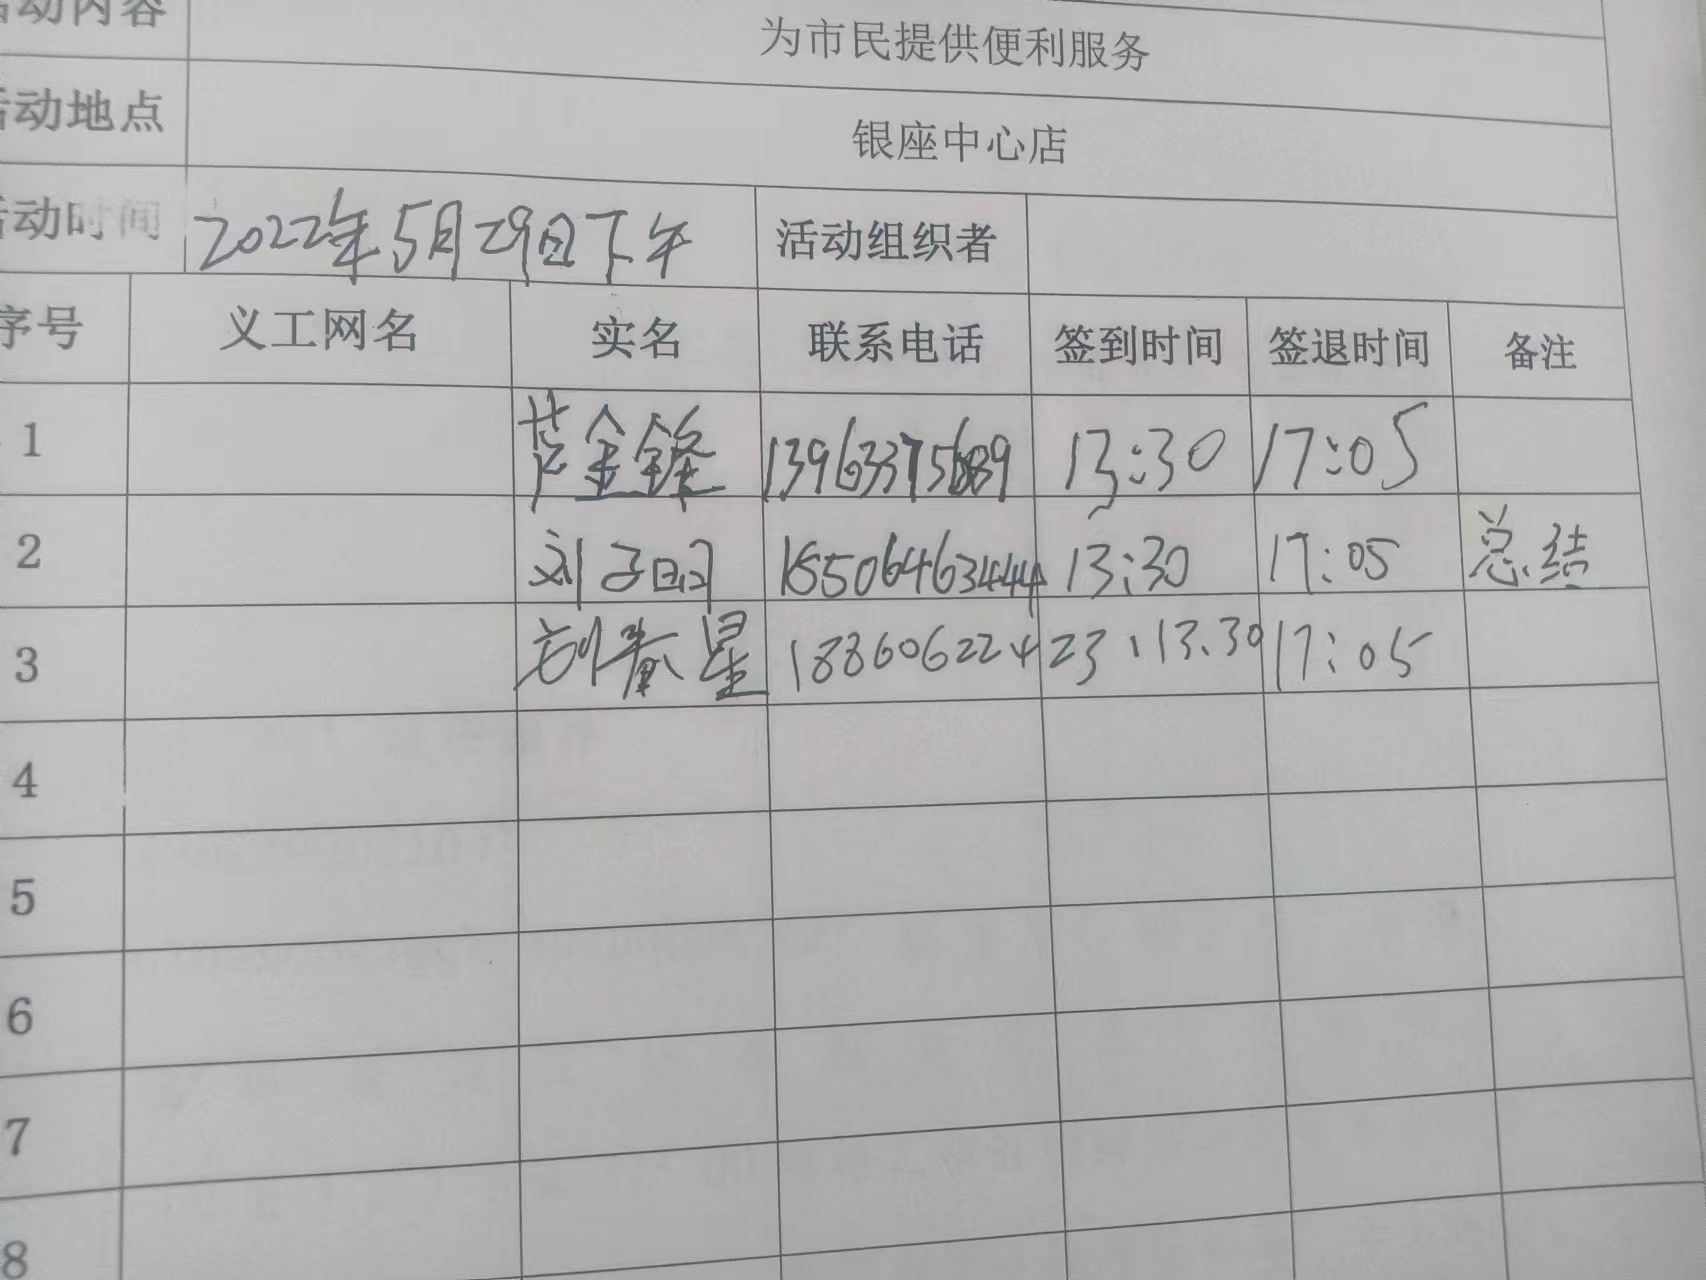 活动内容 为市民提供便利服务
活动地点 银座中心店
活动时间 2022年5月29日下午 活动组织者
序号 义工网名 实名 联系电话 签到时间 签退时间 备注
1 芦金锋 13963375689 13:30 17:05
2 刘子明 15506463444 13:30 17:05 总结
3 刘春星 18860622423 13.30 17:05
4
5
6
7
8